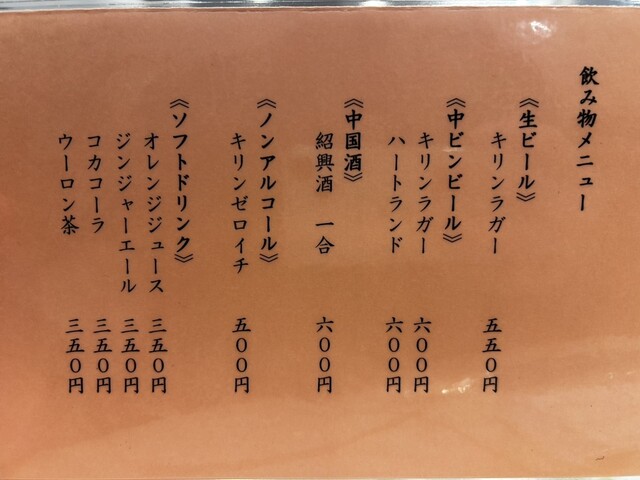 飲み物メニュー
《生ビール》
キリンラガー 五五〇円
《中ビンビール》
キリンラガー 六〇〇円
ハートランド 六〇〇円
《中国酒》
紹興酒 一合 六〇〇円
《ノンアルコール》
キリンゼロイチ 五〇〇円
《ソフトドリンク》
オレンジジュース 三五〇円
ジンジャーエール 三五〇円
コカコーラ 三五〇円
ウーロン茶 三五〇円